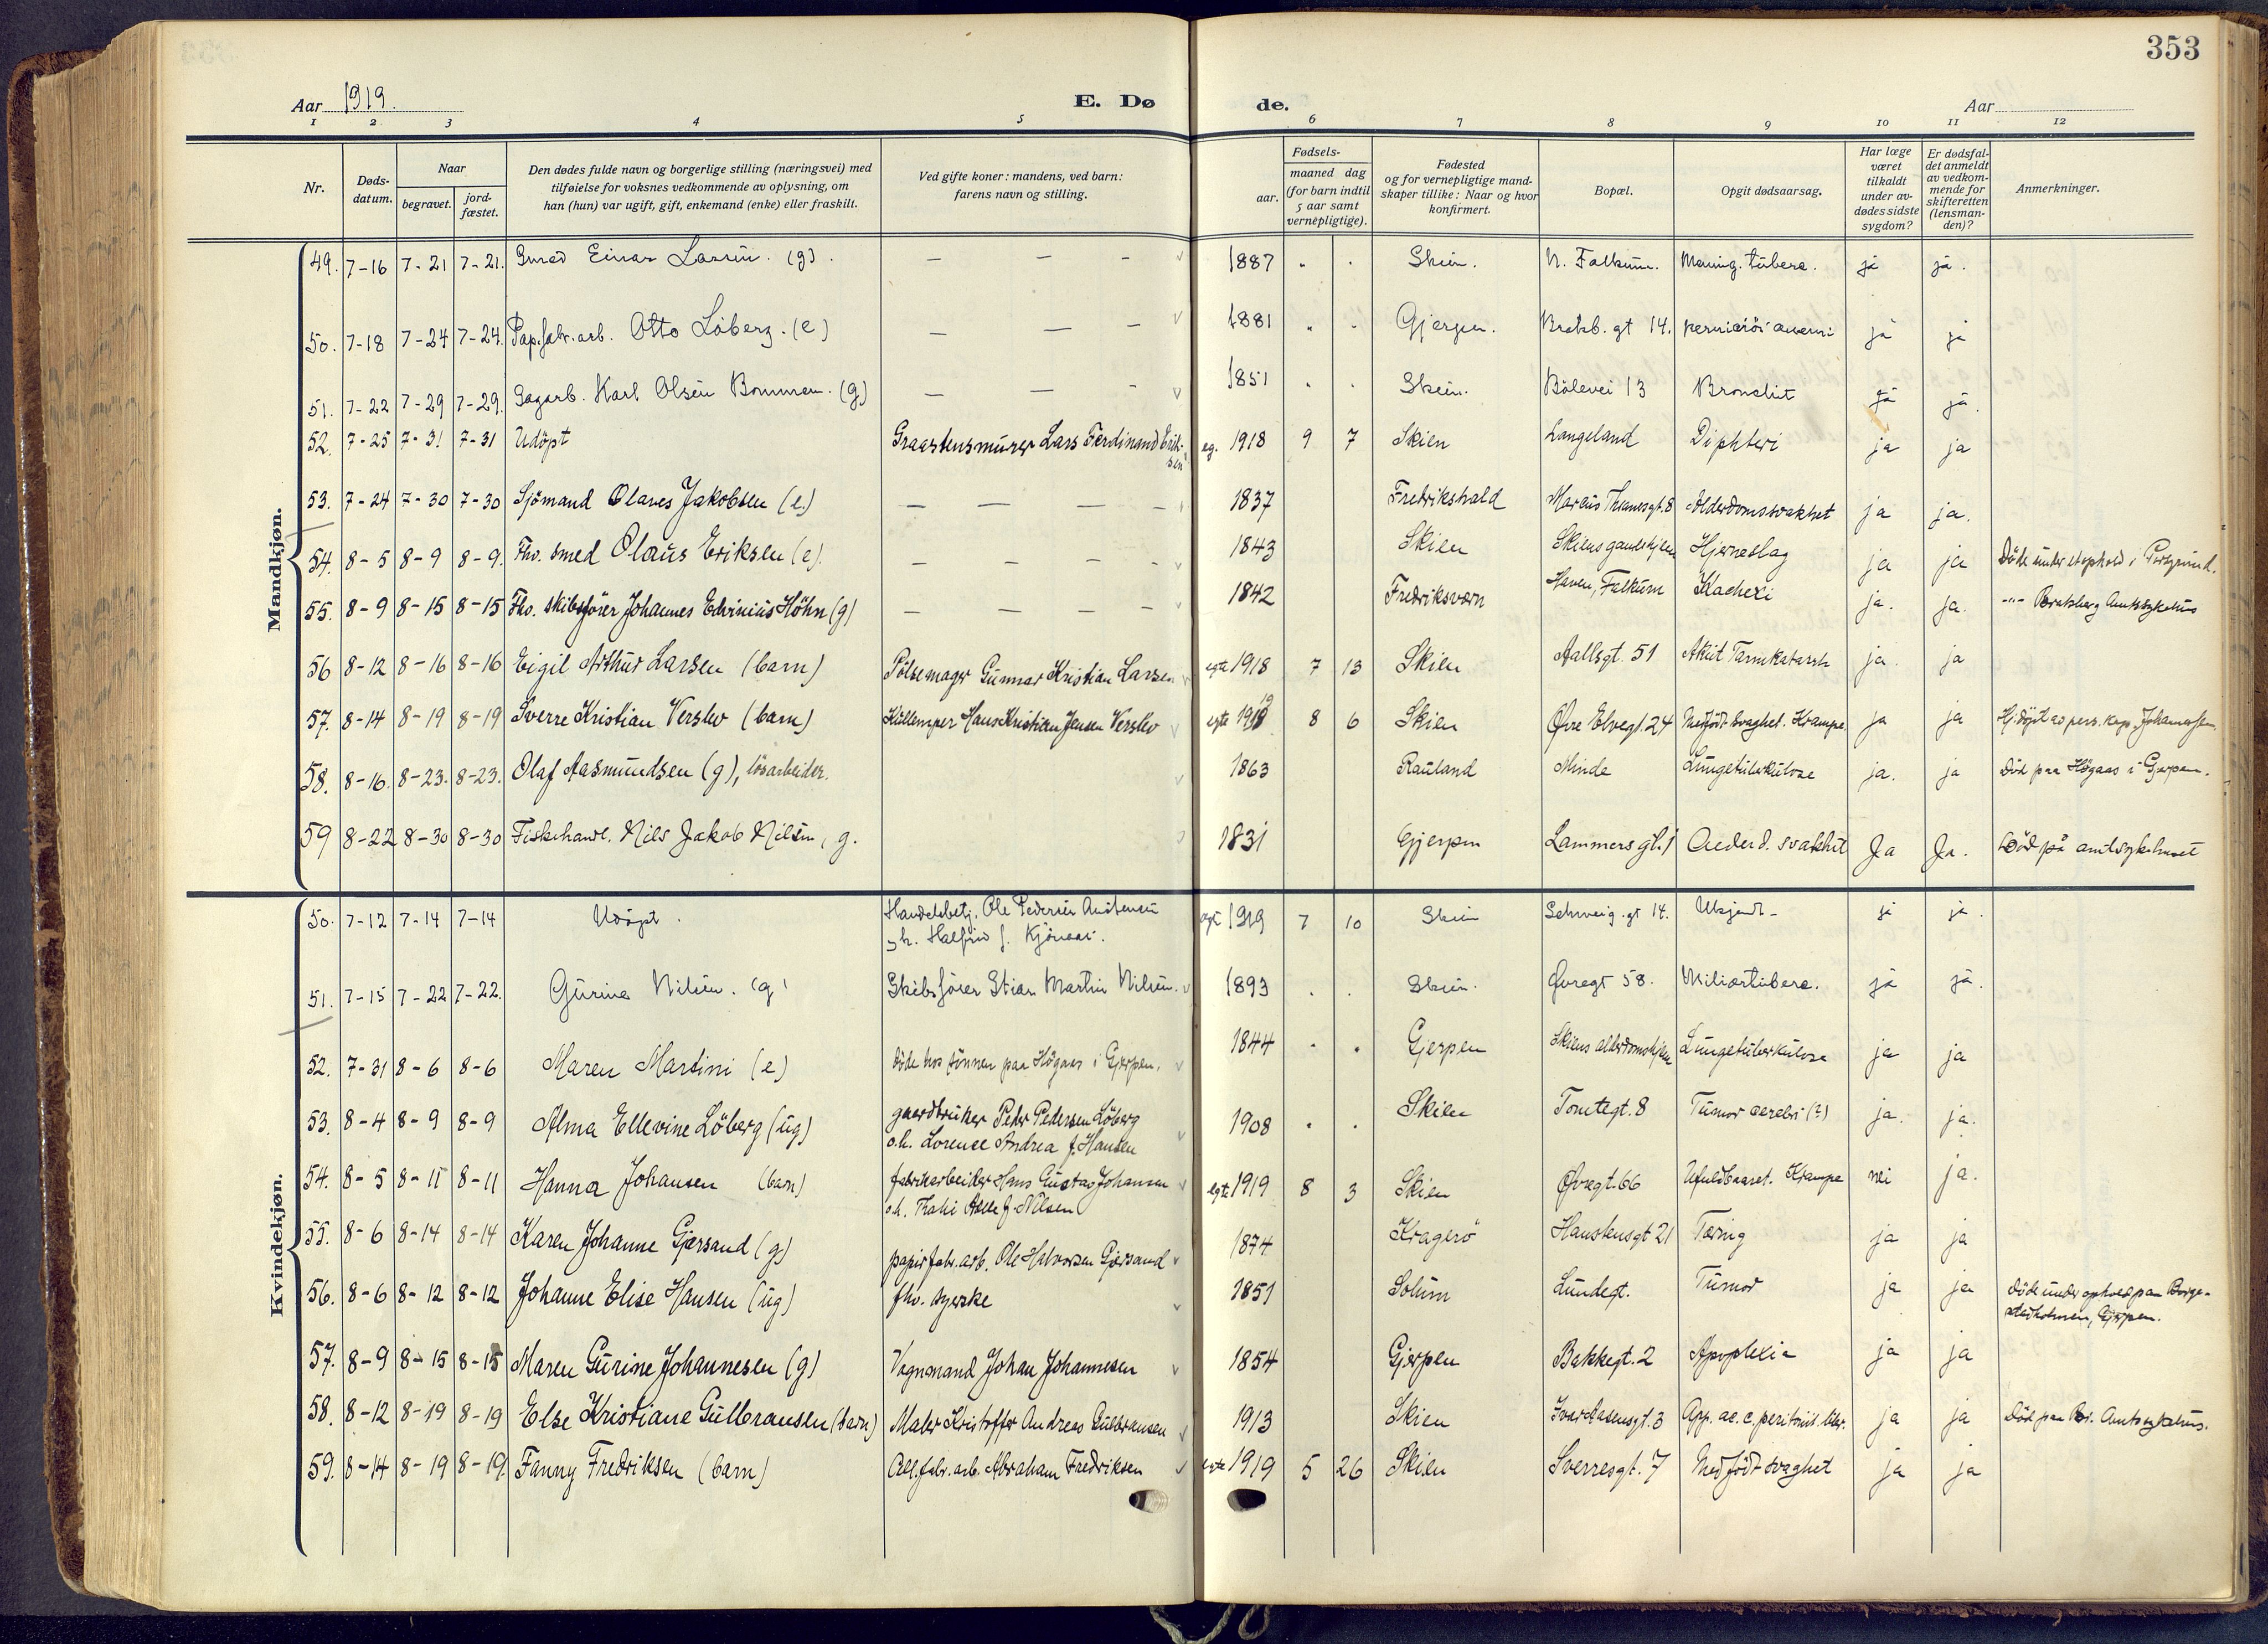 353
Aar 1919. E. Dø de. Aar
1 2 3 4 5 6 7 8 9 10 11 12
Nr. Døds-datum. Naar begravet. jord-fæstet. Den dødes fulde navn og borgerlige stilling (næringsvei) med tilføielse for voksnes vedkommende av oplysning, om han (hun) var ugift, gift, enkemand (enke) eller fraskilt. Ved gifte koner: mandens, ved barn: farens navn og stilling. Fødsels- aar. maaned dag (for barn indtil 5 aar samt vernepligtige). Fødested og for vernepligtige mand-skaper tillike: Naar og hvor konfirmert. Bopæl. Opgit dødsaarsag. Har læge været tilkaldt under av-dødes sidste sygdom? Er dødsfal-det anmeldt av vedkom-mende for skifteretten (lensman-den)? Anmerkninger.
Mandkjøn.
49. 7-16 7-21 7-21. Einar Larsen. (g). — — — 1887 Skien. N. Falkum. Mening. tuberc. ja ja.
50. 7-18 7-24 7-24. Pap.fabr.arb. Otto Löberg. (e) — — — 1881 Gjerpen. Bratsb. gt 14. perniciös anemi ja ja
51. 7-22 7-29 7-29. Sagarb. Karl Olsen Bommen. (g) — — - 1851 Skien. Bölevei 13 Bronchit ja ja.
52. 7-25 7-31 7-31 Udöpt Graastensmurer Lars Ferdinand Erik-sen eg. 1918 9 7 Skien Langeland Diphteri ja ja
53. 7-24 7-30 7-30 Sjömand Olaves Jakobsen (e.) — — — - 1837 Fredrikshald Marcus Thranesgt. 8 Alderdomssvakhet ja ja.
54. 8-5 8-9 8-9. Fhv. smed Olaus Eriksen (e). — — — - 1843 Skien Skiens gamlehjem Hjerneslag ja ja Döde under ophold i Porsgrund.
55. 8-9 8-15 8-15 Fhv. skibsfører Johannes Edvinius Höhn (g) — — — - 1842 Fredriksværn Haven, Falkum Kachexi ja. ja. -"- Bratsberg Amtssykehus
56 8-12 8-16 8-16 Eigil Arthur Larsen (barn) Pölsemager Gunnar Kristian Larsen egte 1918 7 13 Skien Aallsgt. 51 Akut Tarmkatarrh ja. ja
57. 8-14 8-19 8-19 Sverre Kristian Verslev (barn) Kullemper Hans Kristian Jensen Verslev egte 1919 8 6 Skien Øvre Elvegt. 24 Medfödt svaghet. Krampe ja ja Hj.döpt av pers. kap. Johannessen.
58. 8-16. 8-23. 8-23. Olaf Aasmundsen (g), lösarbeider. 1863 Rauland Minde Lungetuberkulose ja. ja Död paa Högaas i Gjerpen.
59 8-22 8-30 8-30 Fiskehandl. Nils Jakob Nilsen, g. 1831 Gjerpen Lammers gt. 1 Alderd. svakhet Ja Ja. Död på amtssykehuset
Kvindekjøn.
50. 7-12 7-14 7-14 Udöpt. Handelsbetj. Ole Pedersen Austensen
o.h. Halfrid f. Kjönaas. egt. 1919 7 10 Skien Schweig. gt 14. Ukjendt - ja ja.
51. 7-15 7-22 7-22. Gurine Nilsen. (g) Skibsfører Stian Martin Nilsen. 1893 Skien. Øvregt 58. Miliærtuberc. ja ja.
52. 7-31 8-6 8-6 Maren Martini (e) döde hos sönnen paa Högaas i Gjerpen. 1844 Gjerpen Skiens alderdomshjem Lungetuberkulose ja ja
53. 8-4 8-9 8-9 Alma Ellevine Löberg (ug) gaardbruker Peder Pedersen Löberg
o.h. Lorence Andrea f. Hansen 1908 Skien Tomtegt. 8 Tumor cerebri (?) ja. ja.
54. 8-5 8-11 8-11 Hanna Johansen (barn) fabrikarbeider Hans Gustav Johansen
o.h. f. Nilsen egte 1919 8 3 Skien Øvregt. 66 Ufuldbaaret. Krampe nei ja.
55. 8-6 8-14 8-14 Karen Johanne Gjersand (g) papirfabr.arb. Ole Halvorsen Gjersand 1874 Kragerö Hanstensgt 21 Tæring ja ja
56. 8-6 8-12 8-12 Johanne Elise Hansen (ug) fhv. syerske 1851 Solum Lundegt. Tumor ja ja Döde under ophold paa Borge-
stadholmen, Gjerpen.
57. 8-9 8-15 8-15 Maren Gurine Johannesen (g) Vognmand Johan Johannesen 1854 Gjerpen Bakkegt. 2 Apoplexia ja ja
58. 8-12 8-19 8-19 Else Kristiane Gulbransen (barn) Maler Kristoffer Andreas Gulbransen 1913 Skien Ivar Aasensgt. 3 App. ac. c. peritonit. liber. ja ja Död paa Br. Amtssykehus.
59. 8-14 8-19 8-19. Fanny Fredriksen (barn) Cell.fabr.arb. Abraham Fredriksen egte 1919 5 26 Skien Sverresgt. 7 Medfödt svaghet ja ja